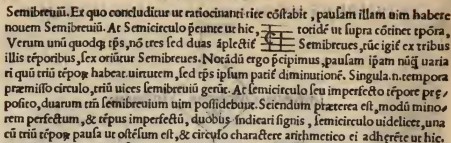 Semibreuiū. Ex quo concluditur ut ratiocinanti rite cōstabit, pausam illam uim habere
nouem Semibreuiū. At Semicirculo p̱eunte ut hic, totidē ut supra cōtinet tp̄ora,
Verum unū quodq; tp̄s, nō tres sed duas āplectit̄ Semibreues, rūc igit̄ ex tribus
illis tēporibus, sex oriūtur Semibreues. Notādū ergo p̄cipimus, pausam ip̄am nūq̄ uaria
ri quū triū tēpoꝝ habeat uirtutem, sed tp̄s ipsum patit̄ diminutionē. Singula.n.tempora
præmisso circulo, triū uices semibreuiū gerūt. At semicirculo seu imperfecto tēpore præ⸗
posito, duarum tm̄ semibreuium uim possidebunt. Sciendum præterea est, modū mino⸗
rem perfectum, & tēpus imperfectū, duobus indicari signis, semicirculo uidelicet, una
cū triū tēpoꝝ pausa ut ostēsum est, & circulo charactere arithmetico ei adhęrēte ut hic.